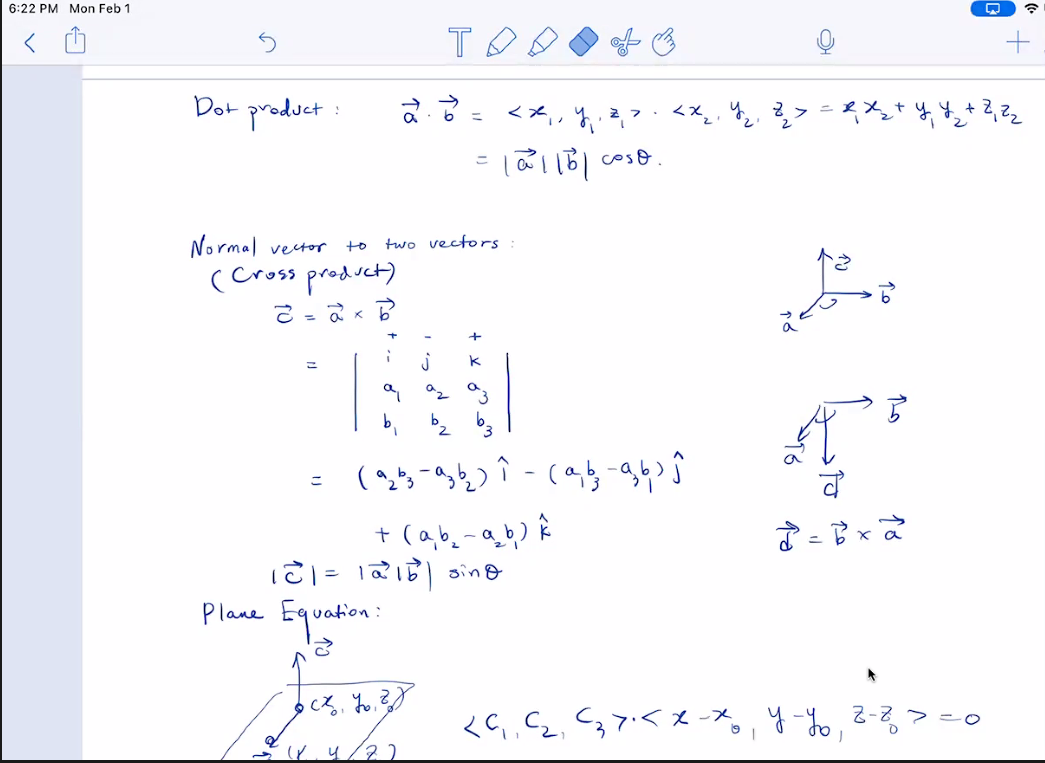 6:22 PM Mon Feb 1
Dot product : a⃗ · b⃗ = <x₁, y₁, z₁> · <x₂, y₂, z₂> = x₁x₂ + y₁y₂ + z₁z₂
= |a⃗||b⃗| cosθ.
Normal vector to two vectors :
(Cross product)
c⃗ = a⃗ × b⃗
+ - +
= | i j k |
| a₁ a₂ a₃ |
| b₁ b₂ b₃ |
= (a₂b₃ - a₃b₂) î - (a₁b₃ - a₃b₁) ĵ
+ (a₁b₂ - a₂b₁) k̂
|c⃗| = |a⃗||b⃗| sinθ
c⃗
b⃗
a⃗
b⃗
a⃗
d⃗
d⃗ = b⃗ × a⃗
Plane Equation :
c⃗
(x₀, y₀, z₀)
(x, y, z)
<c₁, c₂, c₃> · <x - x₀, y - y₀, z - z₀> = 0